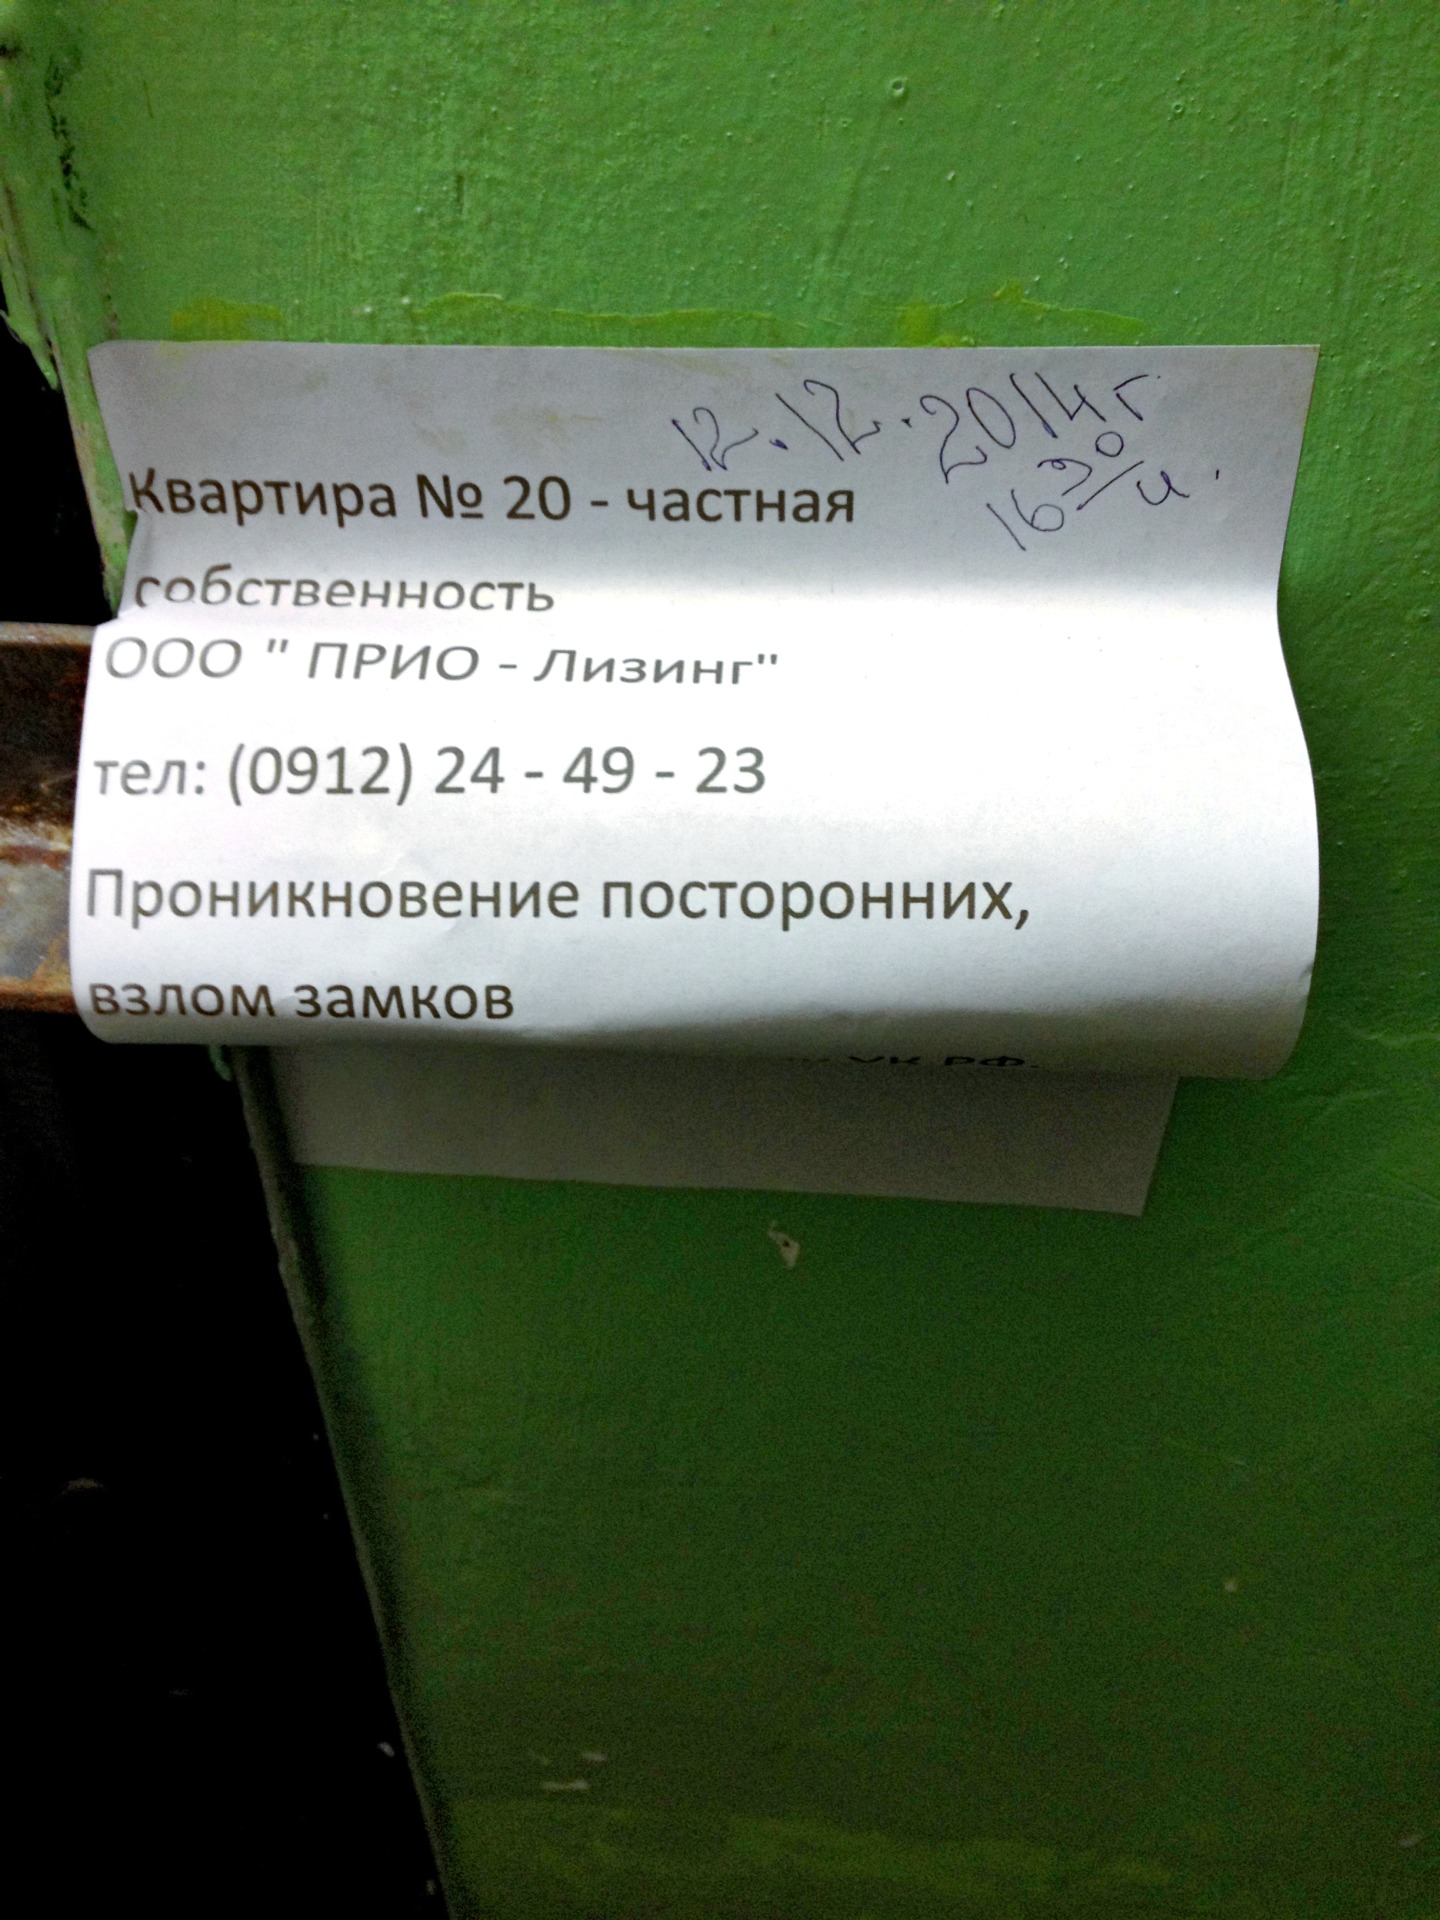 12.12.2014 г
16 30/ч.
Квартира № 20 - частная
собственность
ООО " ПРИО - Лизинг"
тел: (0912) 24 - 49 - 23
Проникновение посторонних,
взлом замков
УК РФ.